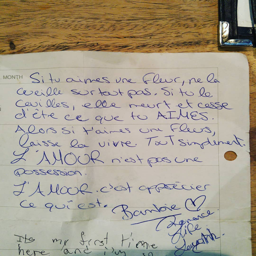 MONTH
Si tu aimes une fleur, ne la
cueille surtout pas. Si tu la
cueilles, elle meurt et cesse
d'être ce que tu AIMES.
Alors si t'aimes une fleurs,
laisse la vivre TOUT simplement.
L'AMOUR n'est pas une
possession.
L'AMOUR c'est apprécier
ce qui est.
Life
Its my first time
here and